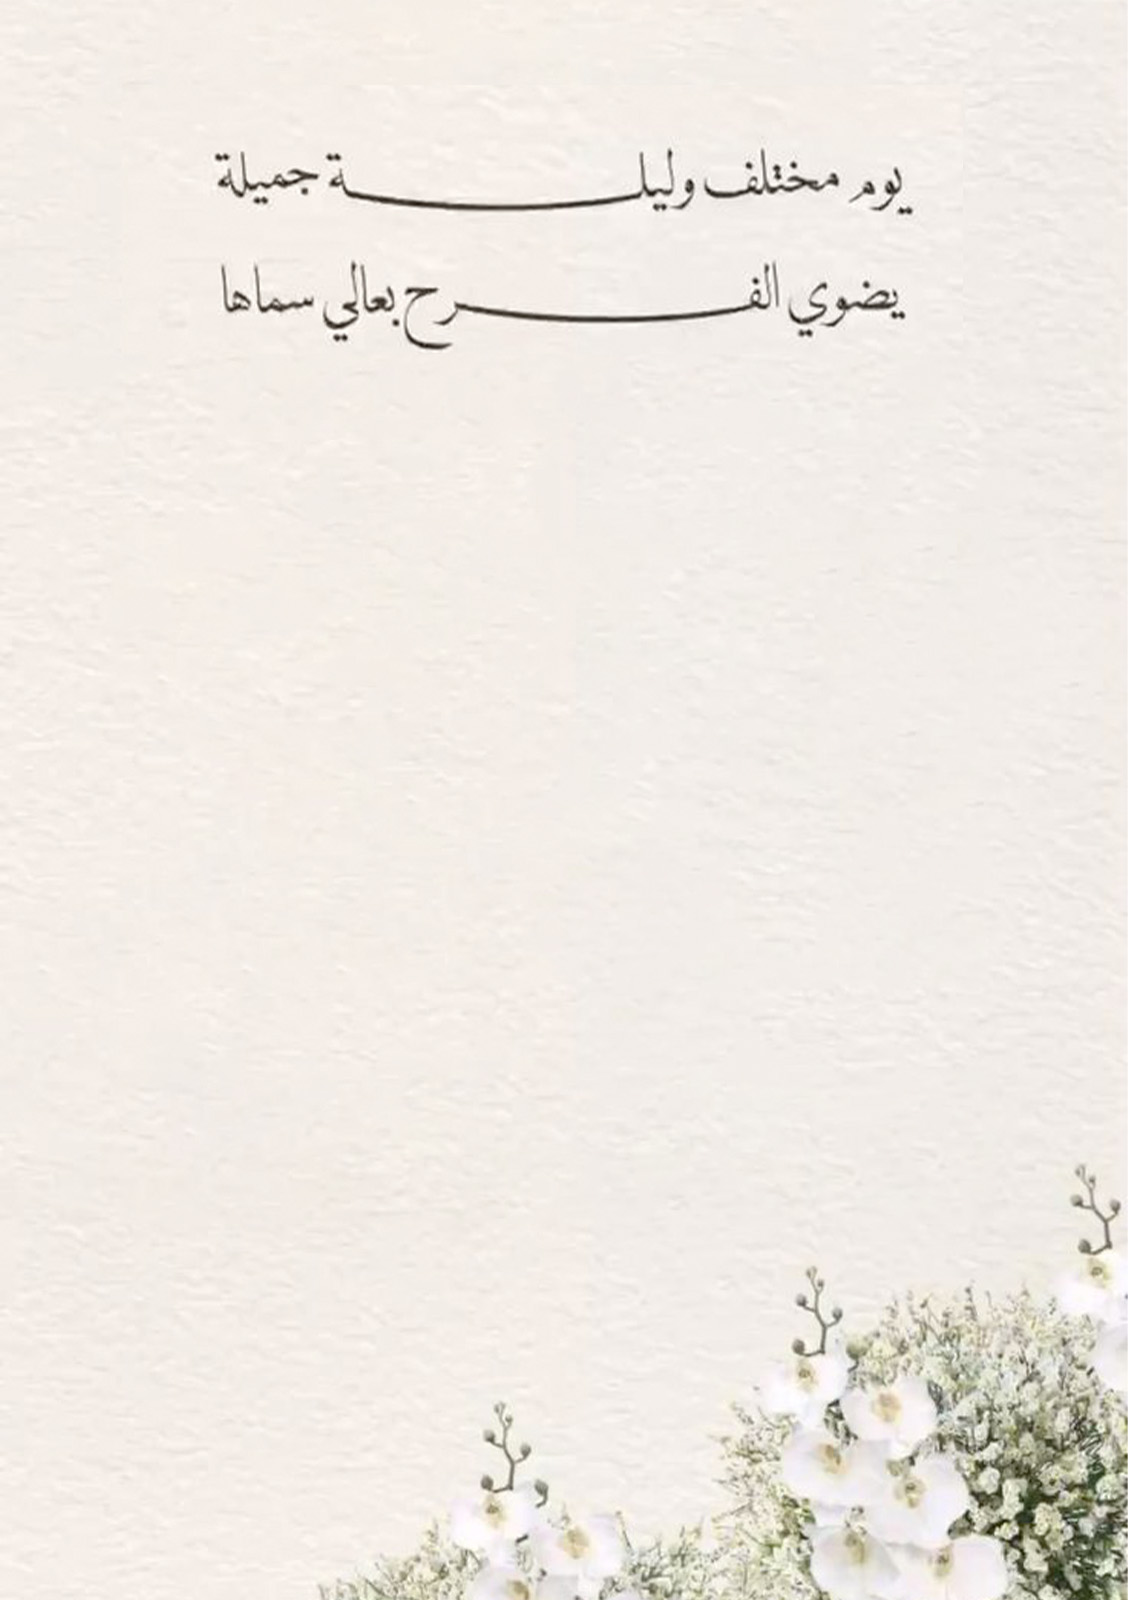 يوم مختلف وليلـــــــــــة جميلة
يضوي الفـــــــــــرح بعالي سماها